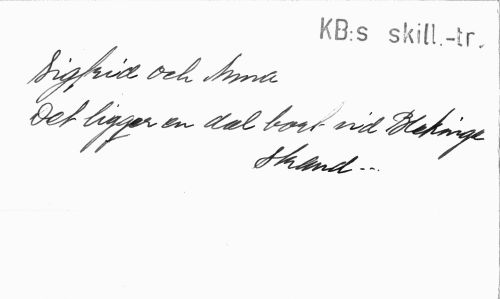 KB:s skill.-tr.
Sigfrid och Anna
Det ligger en dal bort vid Blekinge
strand...